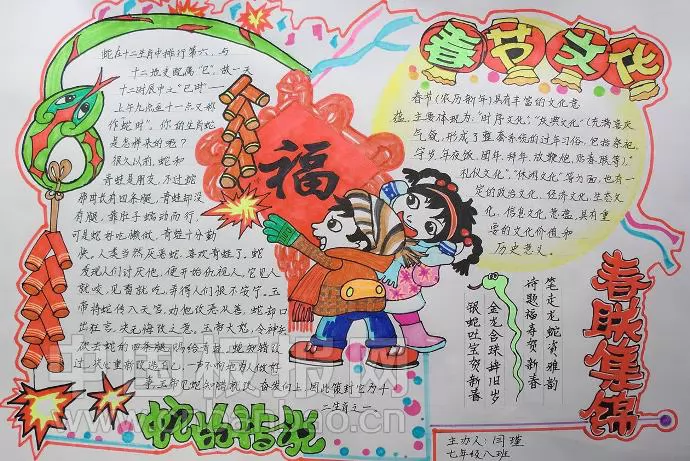 蛇在十二生肖中排行第六,与
十二地支配属“巳”,故一天
十二时辰中之“巳时”——
上午九点至十一点又称
作蛇时”。你的生肖蛇
是怎样来的呢?
很久以前,蛇和
青蛙是朋友,不过蛇
那时长有四条腿,青蛙却没
有腿,靠肚子蠕动而行,
可是蛇好吃懒做,青蛙十分勤
快。人类当然厌恶蛇,喜欢青蛙了。蛇
发现人们讨厌他,便开始仇视人,它见人
就咬,见畜就吃,弄得人们很不安宁。玉
帝将蛇传入天宫,劝他改恶从善,蛇却口
出狂言,决无悔改之意。玉帝大怒,令神兵
砍去蛇的四条腿,赐给青蛙。蛇知错认
过,决心重新改造自己,一声不响地为人做好
事。玉帝见蛇知错就改,奋发向上,因此策封它为十
二生肖之一。
蛇的传说
福
春节文化
春节(农历新年)具有丰富的文化意
蕴,主要体现为:“时序文化”,“庆典文化”(充满喜庆
气氛,形成了整套系统的过年习俗,包括祭祀、
守岁、年夜饭、团年、拜年、放鞭炮、贴春联等)、“
礼仪文化”、“休闲文化”等方面,也有一
定的政治文化、经济文化、生态文
化、信息文化意蕴,具有重
要的文化价值和
历史意义。
春联集锦
笔走龙蛇贺雅韵
诗题福寿贺新春
金龙含珠辞旧岁
银蛇吐宝贺新春
主办人:闫瑾
七年级八班